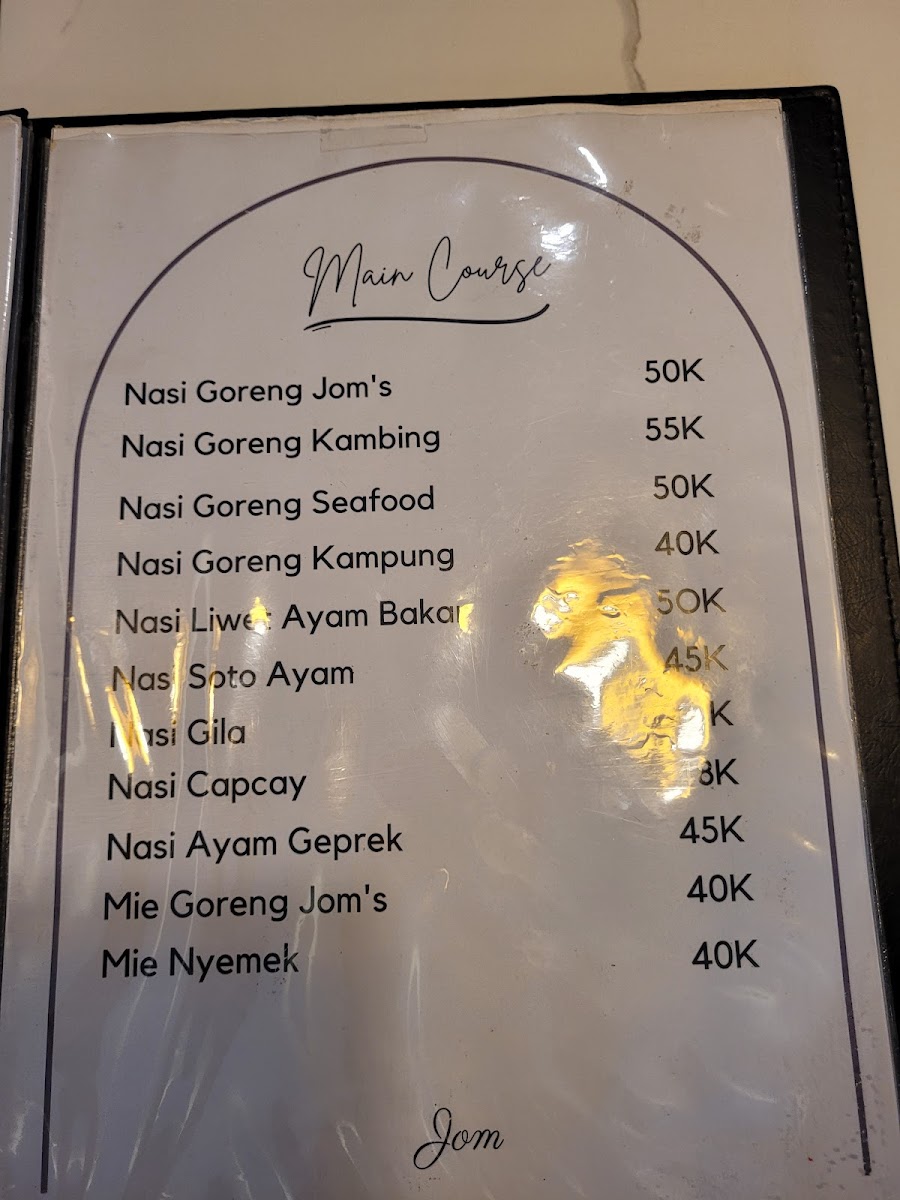 Main Course
Nasi Goreng Jom's 50K
Nasi Goreng Kambing 55K
Nasi Goreng Seafood 50K
Nasi Goreng Kampung 40K
Nasi Liwet Ayam Bakar 50K
Nasi Soto Ayam 45K
Nasi Gila
Nasi Capcay
Nasi Ayam Geprek 45K
Mie Goreng Jom's 40K
Mie Nyemek 40K
Jom